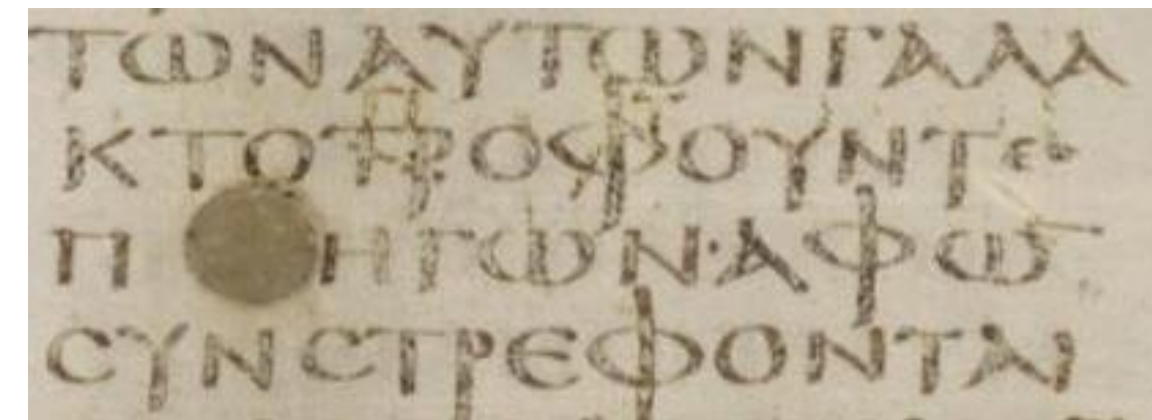 ΤΩΝΑΥΤΩΝΓΑΛΑ
ΚΤΟΤΡΟΦΟΥΝΤΕϹ
Π ΗΓΩΝ·ΑΦΩ̅
ϹΥΝϹΤΡΕΦΟΝΤΑΙ